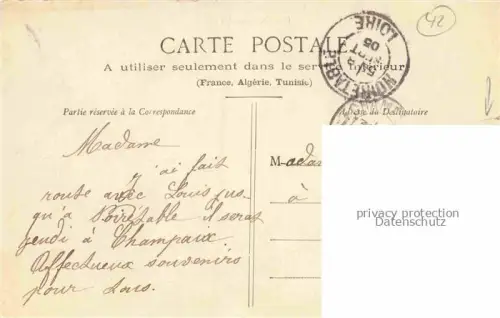 42
CARTE POSTALE
A utiliser seulement dans le service intérieur
(France, Algérie, Tunisie)
NOIRETABLE
LOIRE
05
Partie réservée à la Correspondance
Adresse du Destinataire
Madame
j'ai fait
route avec Louis jus-
qu'à Noirétable il sera
jeudi à Champaix.
Affectueux souvenirs
pour tous.
Madam
à
privacy protection
Datenschutz